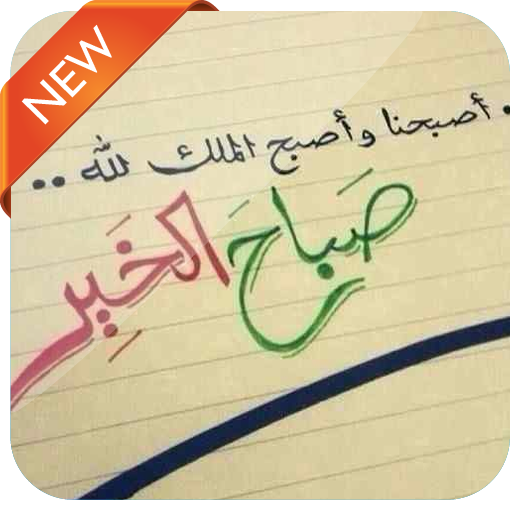 NEW
. أصبحنا وأصبح الملك لله ..
صَباحَ الخَيِر